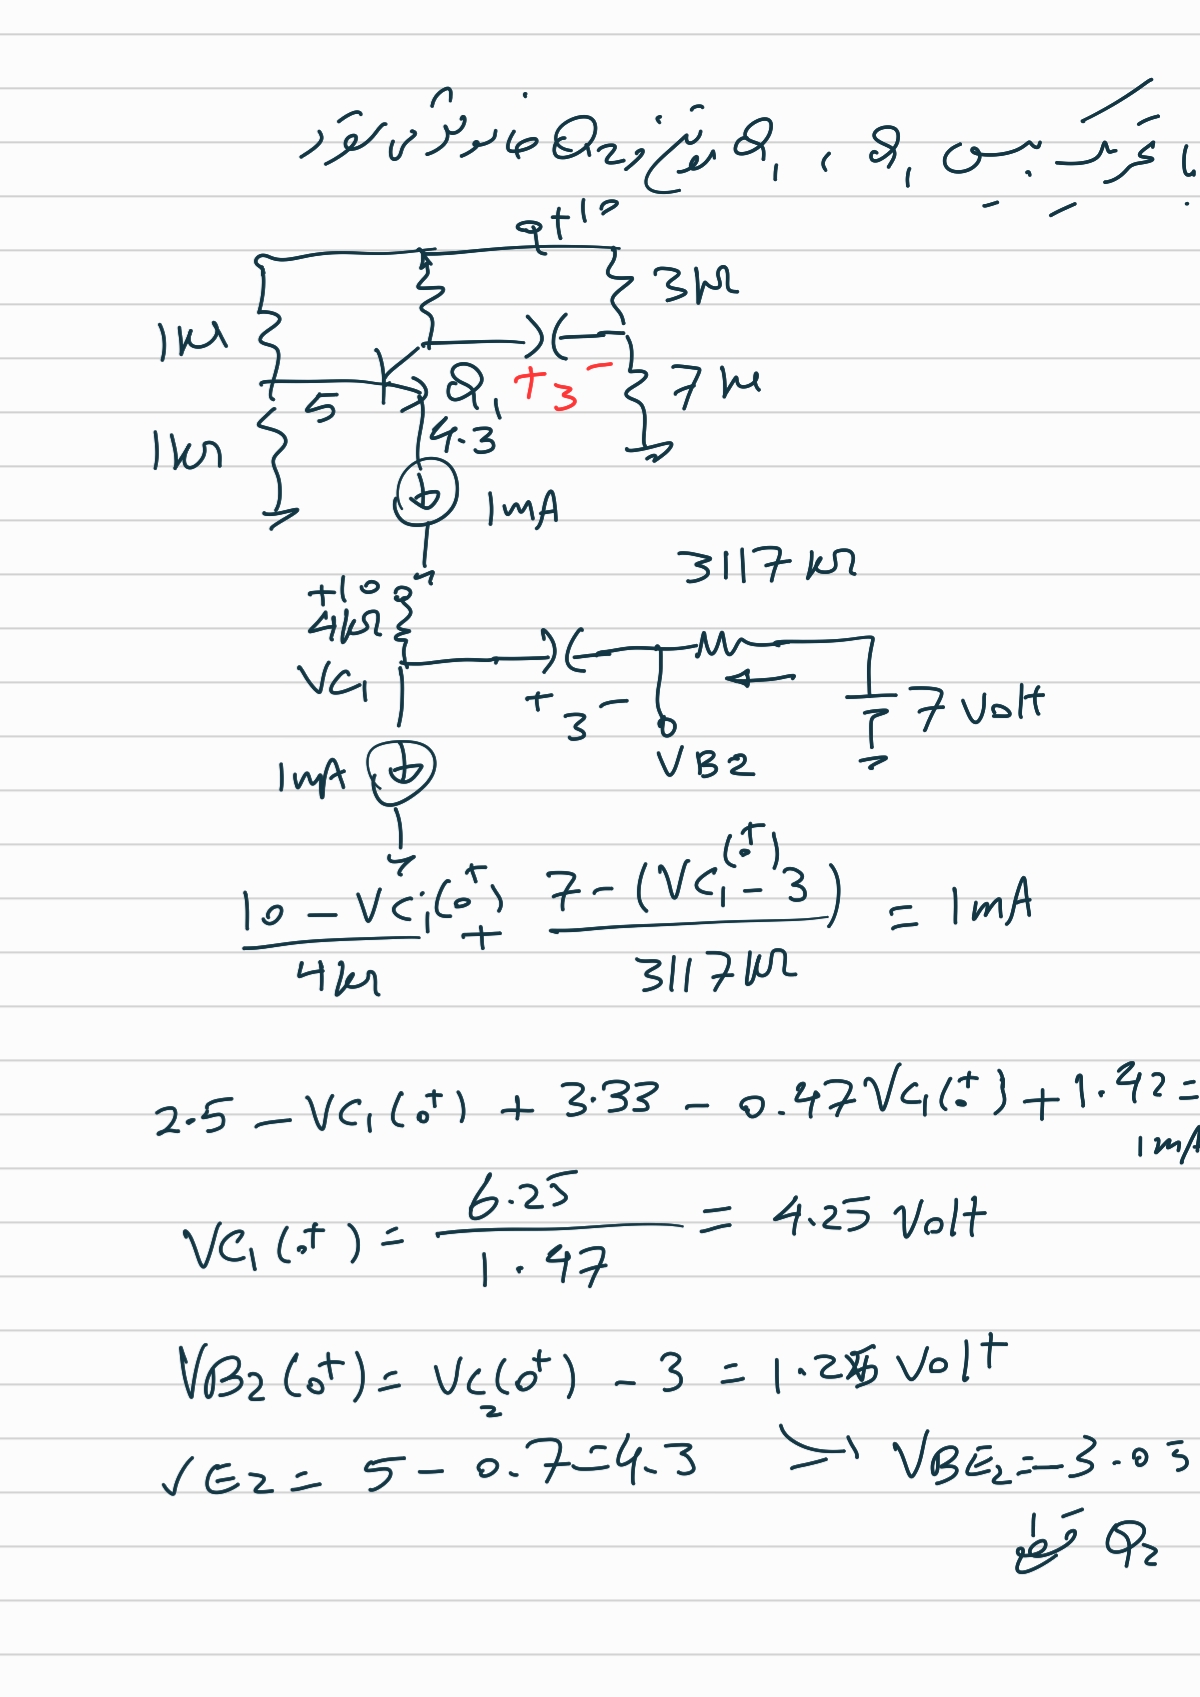 با تحریک بیس Q1 ، Q1 روشن و Q2 خاموش می شود
+10
3kΩ
1kΩ
5 Q1 + 3 - 7kΩ
1kΩ 4.3
1mA
3||7kΩ
+10
4kΩ
VC1
+ 3 - 7 Volt
1mA VB2
10 - VC1(0+) / 4kΩ + 7 - (VC1(0+) - 3) / 3||7kΩ = 1mA
2.5 - VC1(0+) + 3.33 - 0.47VC1(0+) + 1.42 = 1mA
VC1(0+) = 6.25 / 1.47 = 4.25 Volt
VB2(0+) = VC2(0+) - 3 = 1.25 Volt
VE2 = 5 - 0.7 = 4.3 VBE2 = -3.05
Q2 قطع